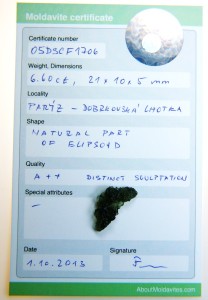 Moldavite certificate
Certificate number
OSDSCF1706
Weight, Dimensions
6.60ct, 21x10x5 mm
Locality
PARÝZ - DOBRKOVSKÁ LHOTKA
Shape
NATURAL PART
OF ELIPSOID
Quality
A ++ DISTINCT SCULPTATION
Special attributes
–
Date
Signature
1.10.2013
AboutMoldavites.com